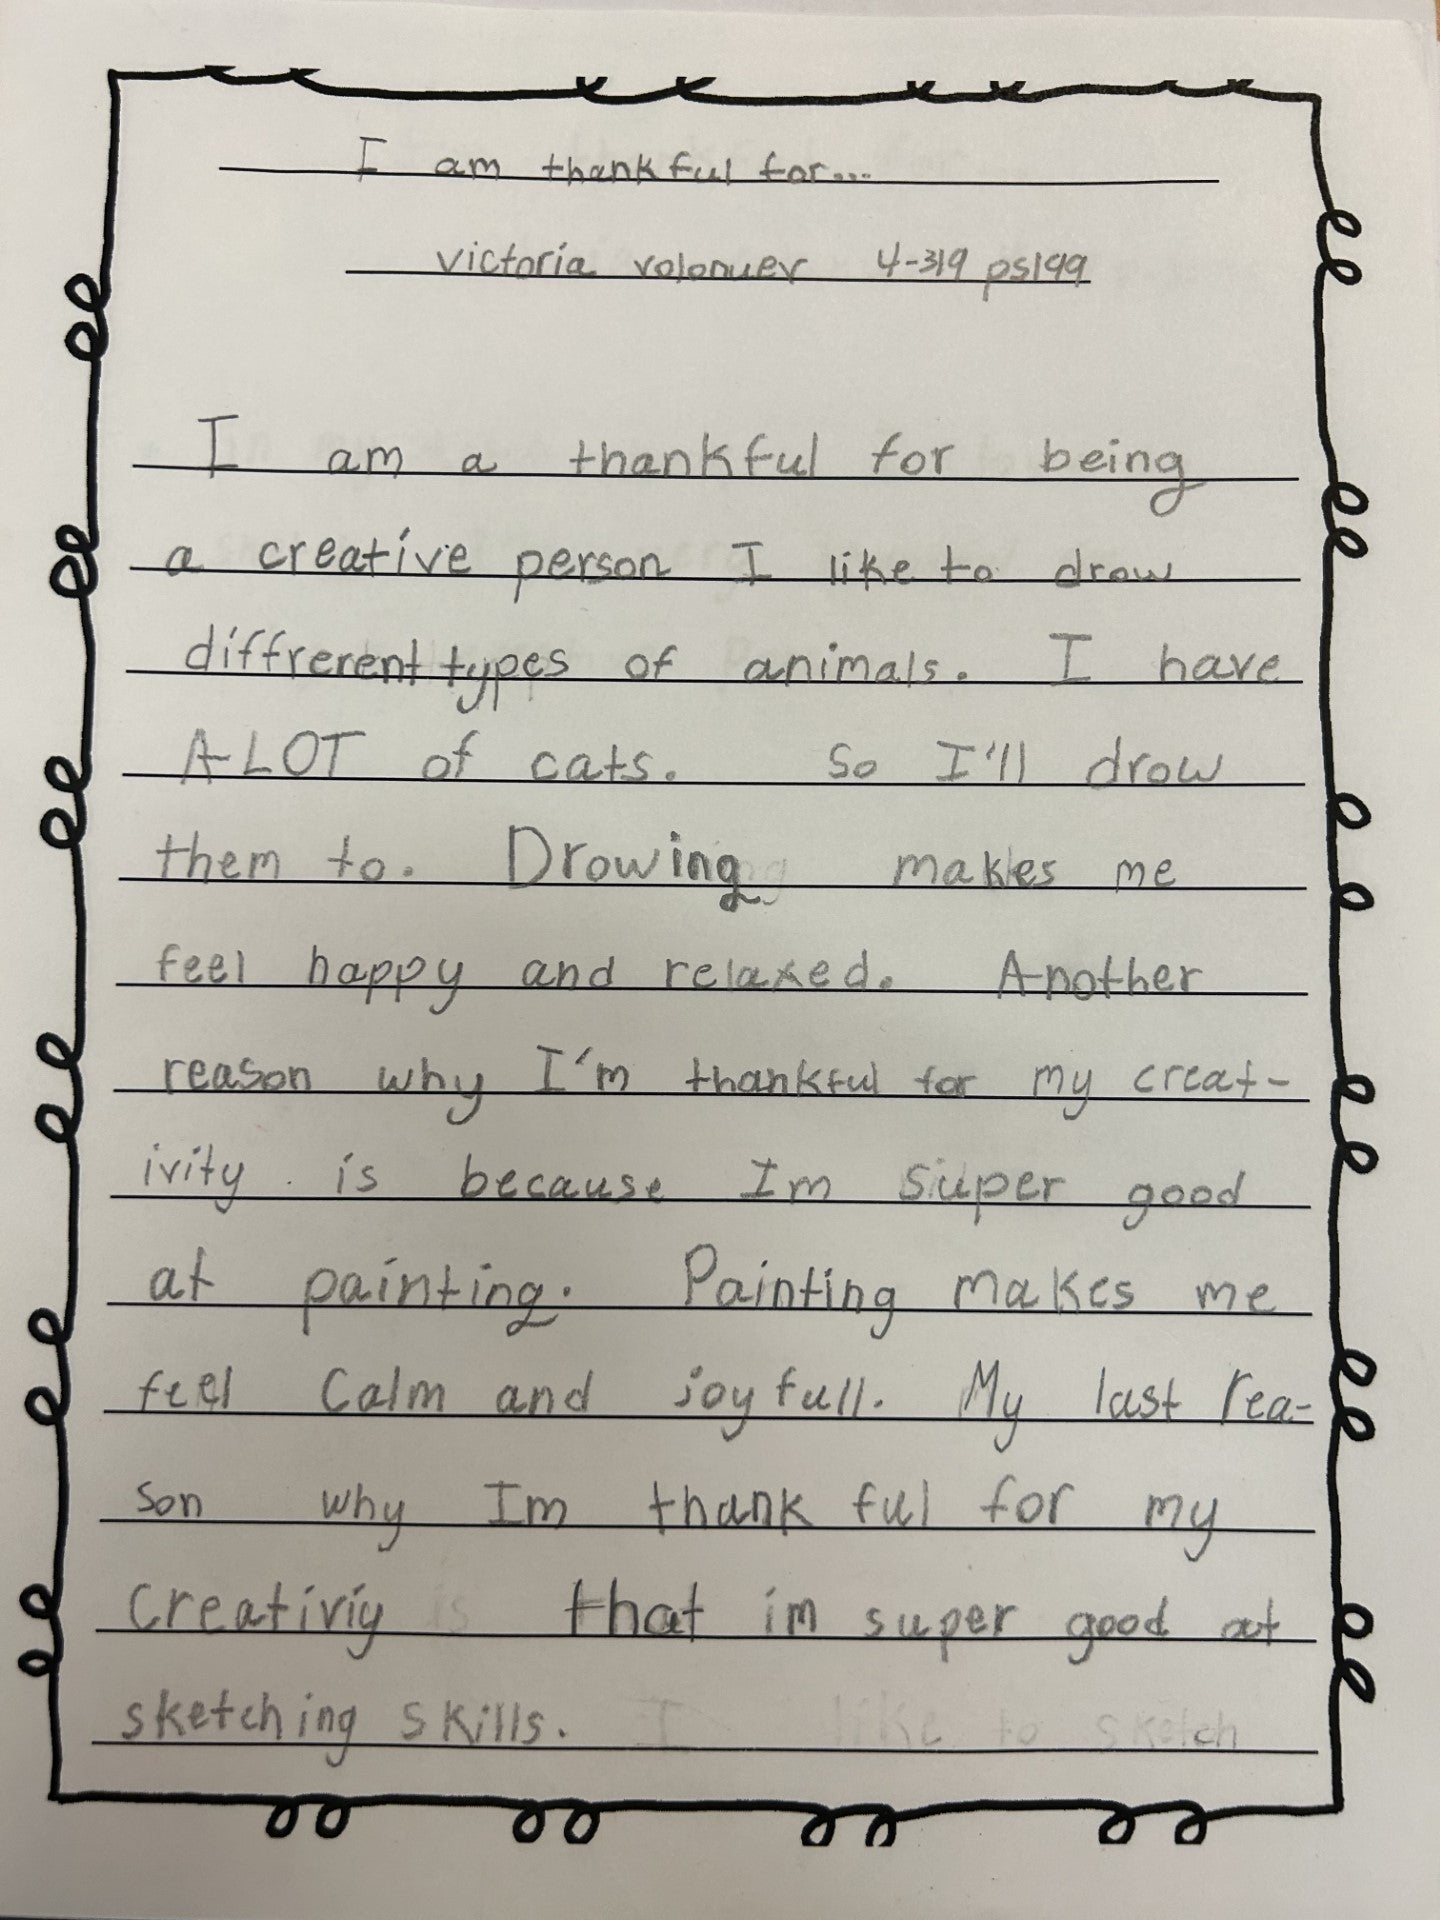 I am thankful for...
victoria volonuev 4-319 ps199
I am a thankful for being
a creative person I like to drow
diffrerent types of animals. I have
A LOT of cats. So I'll drow
them to. Drowing makes me
feel happy and relaxed. Another
reason why I'm thankful for my creat-
ivity is because Im super good
at painting. Painting makes me
feel Calm and joyfull. My last rea-
son why Im thank ful for my
Creativiy that im super good at
sketching skills.